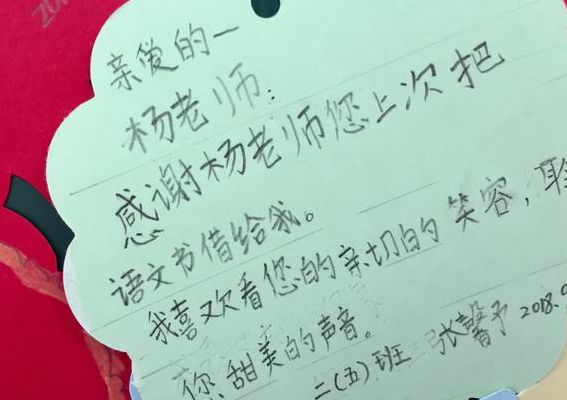 亲爱的一
杨老师:
感谢杨老师您上次把
语文书借给我。
我喜欢看您的亲切的笑容,聆
您甜美的声音。
二(五)班 张馨予 2018.9